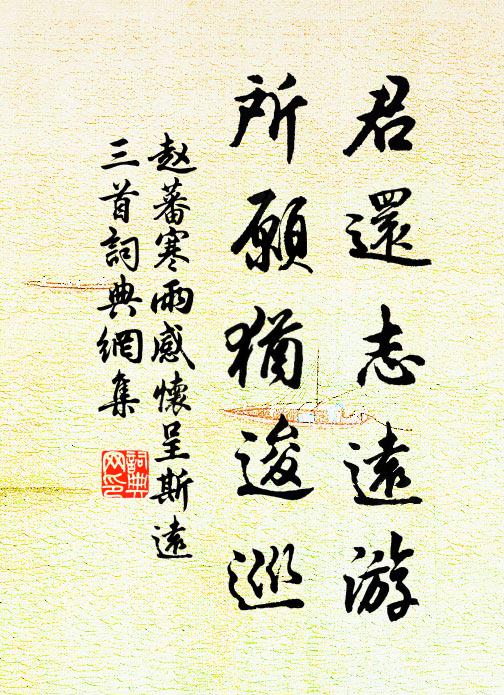 君還志遠游
所願猶逡巡
赵蕃寒雨感懷呈斯遠
三首詞典網集
詞典
网印